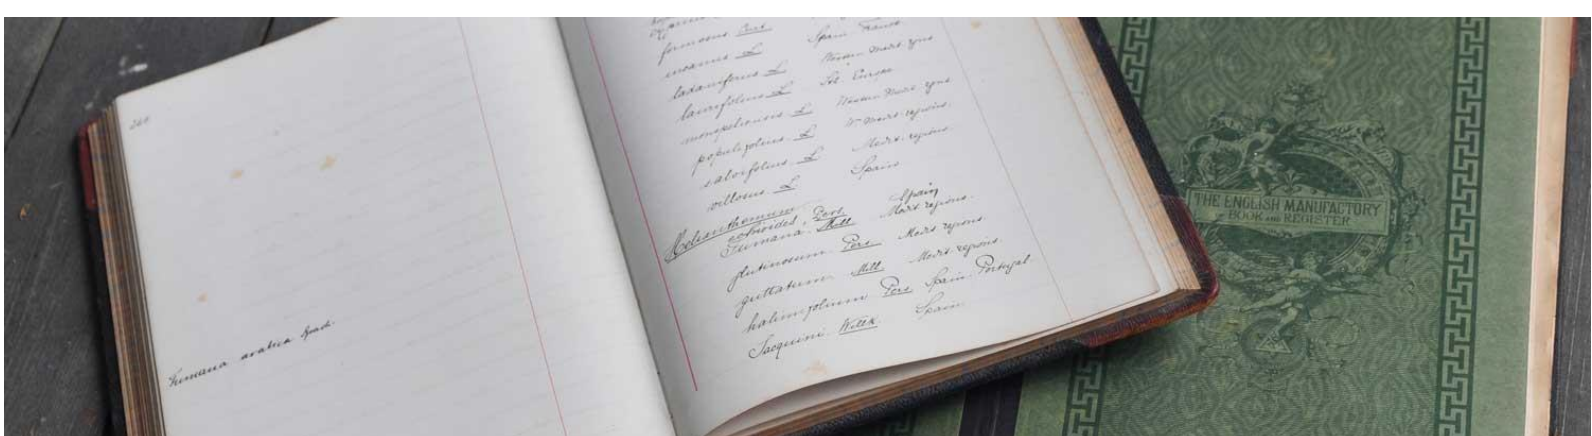 260
Fumana arabica Spach.
formosus
incanus L Spain France
ladaniferus L Western Medit. regns
laurifolius L Sth. Europe
monspeliensis L Western Medit. regns
populifolius L W Medit. regions.
salvifolius L Medit. regions
villosus L Spain
Helianthemum
echioides Pers Spain
Fumana Mill Medit. regions.
glutinosum Pers Medit. regions.
guttatum Mill Medit. regions.
halimifolium Pers Spain Portugal
Jacquini Willk Spain
THE ENGLISH MANUFACTORY
BOOK AND REGISTER